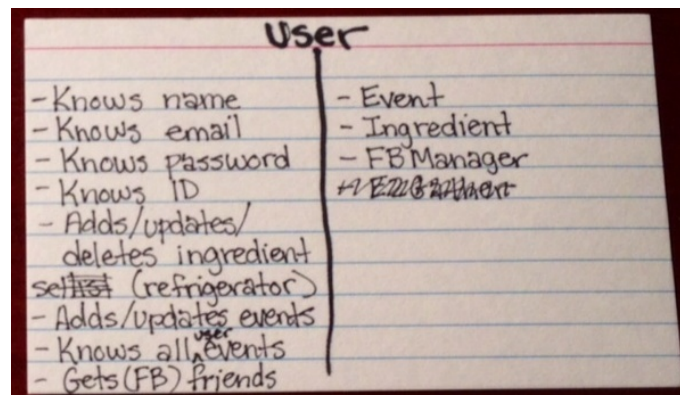 User
- Knows name
- Knows email
- Knows password
- Knows ID
- Adds/updates/
deletes ingredient
set (refrigerator)
- Adds/updates events
- Knows all user events
- Gets (FB) friends
- Event
- Ingredient
- FB Manager